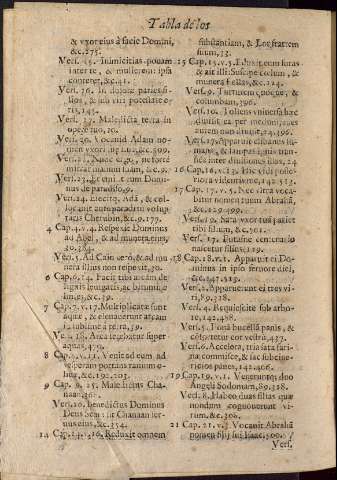 Tabla de los
& vxor eius à facie Domini,
&c.275.
Vers. 15. Inimicitias ponam
inter te, & mulierem: ipsa
conteret, &c.41.
Vers. 16. In dolore paries fi-
lios, & sub viri potestate e-
ris, 143.
Vers. 17. Maledicta terra in
opere tuo, 10.
Vers. 20. Vocauit Adam no-
men vxoris suæ Eua, &c.309.
Vers. 22. Nunc ergo, ne forte
mittat manum suam, &c.9.
Vers. 23. Et emisit eum Domi-
nus de paradiso, 9.
Vers. 24. Eiecitq; Adã, & col-
locauit ante paradisum volup
tatis Cherubin, &c.9.177.
4 Cap. 4. v. 4. Respexit Dominus
ad Abel, & ad munera eius,
30.384.
Vers. 5. Ad Cain vero, & ad mu
nera illius non respexit, 30.
6 Cap. 6. 14. Fac tibi arcam de
lignis leuigatis, ac bitumine
lin es, &c.39.
7 Cap. 7. v. 17. Multiplicatæ sunt
aquæ, & eleuauerunt arcam
in sublime à terra, 59.
Vers. 18. Arca ferebatur super
aquas, 479.
8 Cap. 8. v. 11. Venit ad eum ad
vesperam portans ramum o-
liuæ, &c.192.203.
9 Cap. 9. 25. Maledictus Cha-
naan, 368.
Vers. 26. Benedictus Dominus
Deus Sem: sit Chanaan ser-
uus eius, &c.354.
14 Cap. 14. v. 16. Reduxit omnem
substantiam, & Lot fratrem
suum, 23.
15 Cap. 15. v. 5. Eduxit eum foras
& ait illi: Suspice cœlum, &
numera stellas, &c.224.
Vers. 9. Turturem quoque, &
columbam, 396.
Vers. 10. Tollens vniuersa hæc
diuisit ea per medium: aues
autem non diuisit, 24.396.
Vers. 17. Apparuit clibanus fu-
mans, & lampas ignis tran-
siens inter diuisiones illas, 24
16 Cap. 16. v. 13. Hic vidi poste-
riora videntis me, 142.513.
17 Cap. 17. v. 5. Nec vltra voca-
bitur nomen tuum Abrahã,
&c.129.499.
Vers. 19. Sara vxor tua pariet
tibi filium, &c.301.
Vers. 17. Putasne centenario
nascetur filius, 119.
18 Cap. 18. v. 1. Apparuit ei Do-
minus in ipso feruore diei,
&c.447.519.
Vers. 2. Apparuerunt ei tres vi-
ri, 89.318.
Vers. 4. Requiescite sub arbo-
re, 142.438.
Vers. 5. Ponã bucellã panis, &
confortetur cor vestrũ, 437.
Vers. 6. Accelera, tria sata fari-
næ commisce, & fac subcine-
ritios panes, 142.406.
19 Cap. 19. v. 1. Veneruntq; duo
Angeli Sodomam, 89.318.
Vers. 8. Habeo duas filias quæ
nondum cognouerunt vi-
rum, &c.306.
21 Cap. 21. v. 3. Vocauit Abrahã
nomen filij sui Isaac, 509.
Vers.